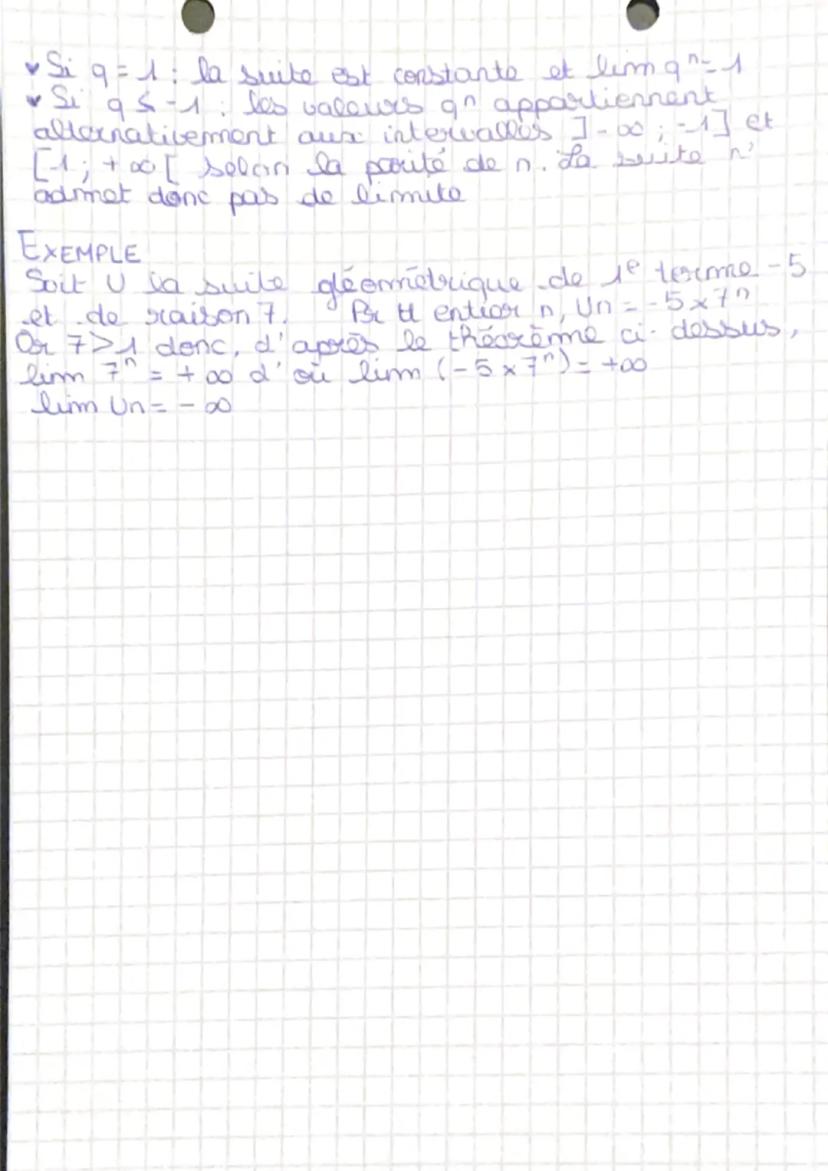 ♥ Si q = 1 : la suite est constante et lim qⁿ = 1
♥ Si q ≤ -1 : les valeurs qⁿ appartiennent
alternativement aux intervalles ]-∞ ; -1] et
[1 ; +∞[ selon la parité de n. La suite n'
admet donc pas de limite
EXEMPLE
Soit U la suite géométrique de 1e terme -5
et de raison 7. Pr tt entier n, Un = -5 × 7ⁿ
Or 7 > 1 donc, d'après le théorème ci-dessus,
lim 7ⁿ = +∞ d'où lim (-5 × 7ⁿ) = +∞
lim Un = -∞